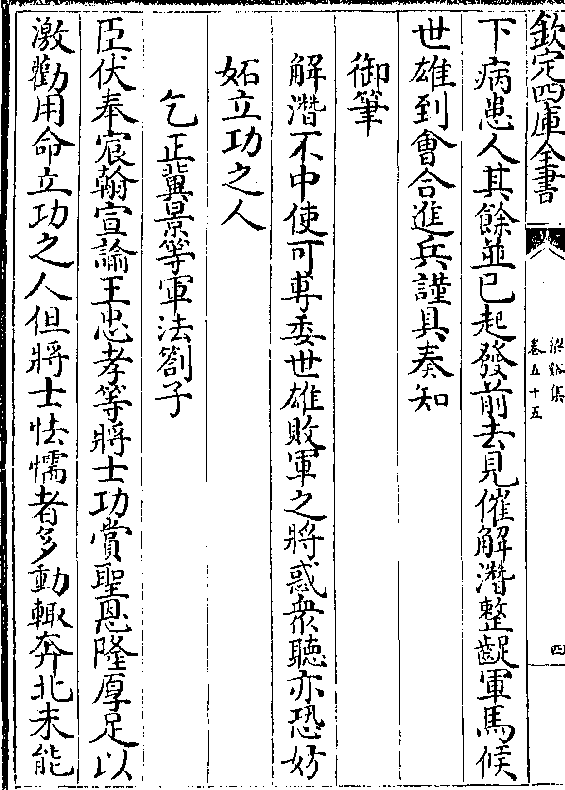 欽定四庫全書
梁谿集
卷五十五
四
下病患人其餘並已起發前去見催解潛整龊軍馬候
世雄到會合進兵謹具奏知
御筆
解潛不中使可專委世雄敗軍之將惑衆聽亦恐妨
妬立功之人
乞正冀景等軍法劄子
臣伏奉宸翰宣諭王忠孝等將士功賞聖恩隆厚足以
激勸用命立功之人但將士怯懦者多動輙奔北未能